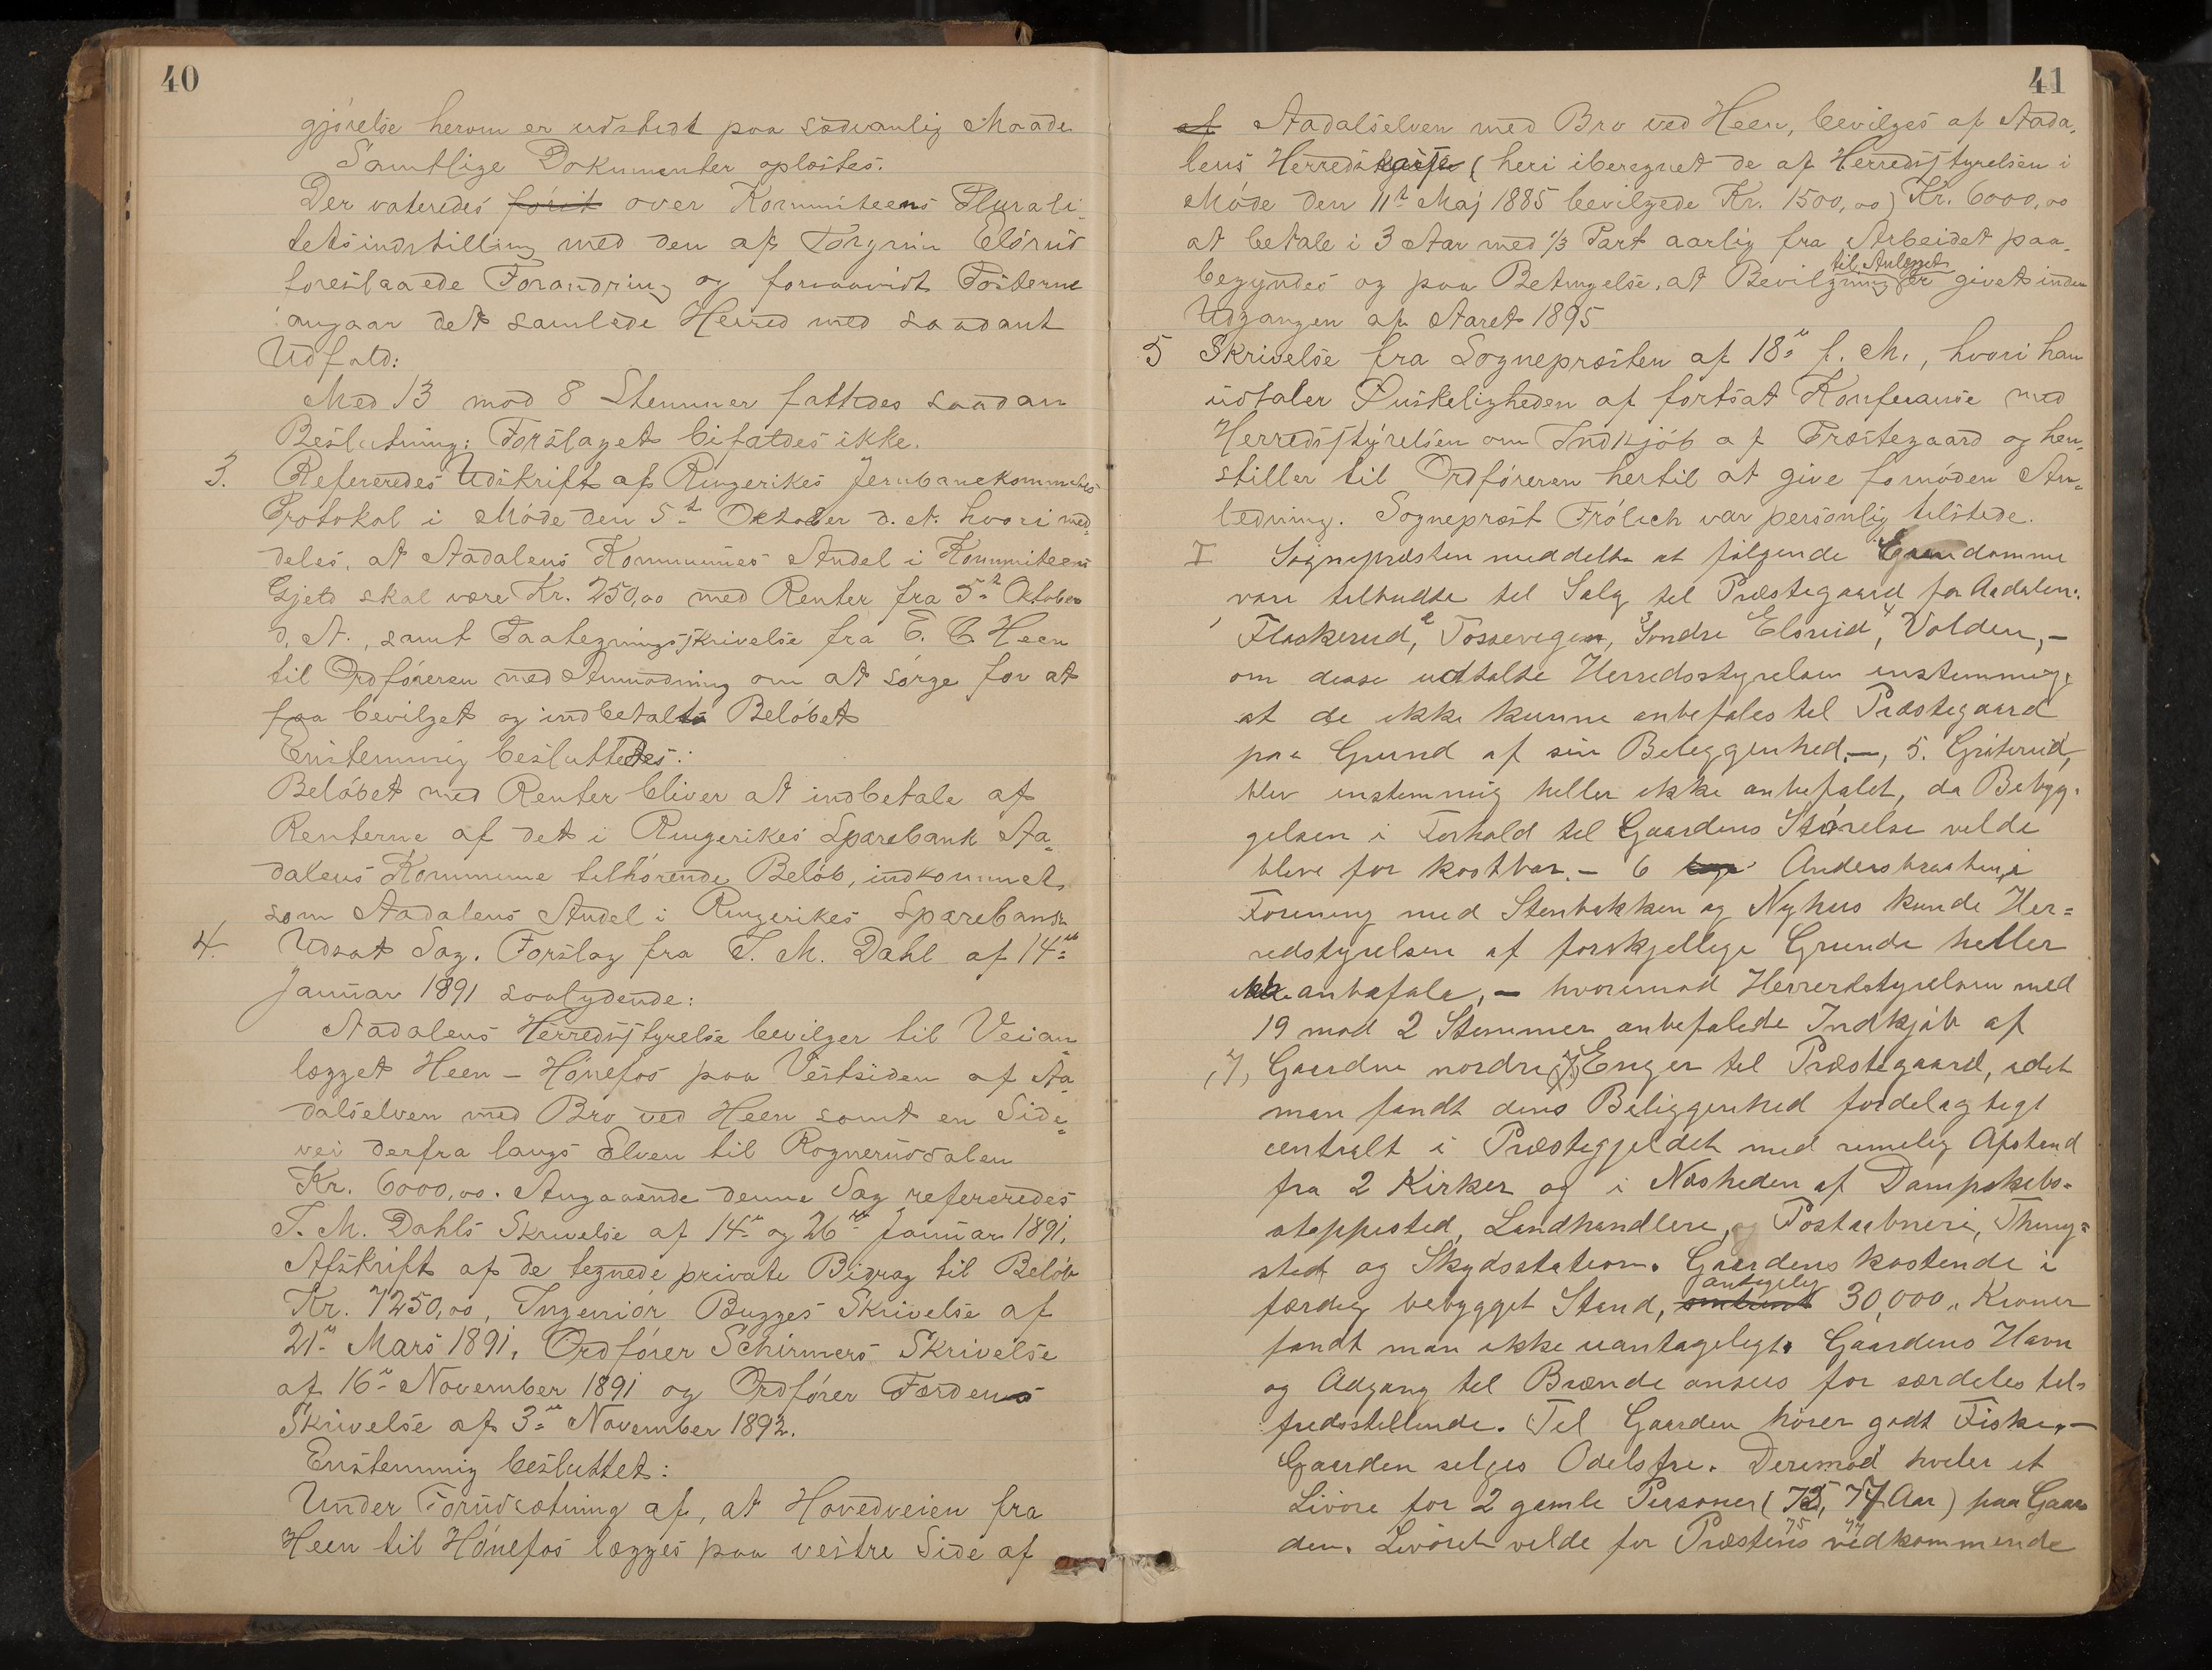 40
gjørelse herom er udstedt paa sædvanlig Maade.
Samtlige Dokumenter oplæstes.
Der voteredes først over Kommiteens Plurali-
tetsindstilling med den af Torgrim Elsrud
foreslaaede Forandring og forsaavidt Posterne
angaar det samlede Herred med saadant
Udfald:
Med 13 mod 8 Stemmer fattedes saadan
Beslutning: Forslaget bifaldes ikke.
3. Refereredes Udskrift af Ringerikes Jernbanekommites
Protokol i Møde den 5te Oktober d. A. hvori med-
deles, at Aadalens Kommunes Andel i Kommiteens
Gjeld skal være Kr. 250,00 med Renter fra 5te Oktober
d. A., samt Paategningsskrivelse fra E. C. Heen
til Ordføreren med Anmodning om at sørge for at
faa bevilget og indbetalt Beløbet
Enstemmig besluttedes:
Beløbet med Renter bliver at indbetale af
Renterne af det i Ringerikes Sparebank Aa-
dalens Kommune tilhørende Beløb, indkommet
som Aadalens Andel i Ringerikes Sparebank
4. Udsat Sag. Forslag fra T. M. Dahl af 14de
Januar 1891 saalydende:
Aadalens Herredsstyrelse bevilger til Veian-
lægget Heen – Hønefos paa Vestsiden af Aa-
dalselven med Bro ved Heen samt en Side-
vei derfra langs Elven til Rognerudsalen
Kr. 6000,00. Angaaende denne Sag refereredes
T. M. Dahls Skrivelse af 14de og 26de Januar 1891.
Afskrift af de tegnede private Bidrag til Beløb
Kr. 7250,00, Ingeniør Bugges Skrivelse af
21de Mars 1891, Ordfører Schirmers Skrivelse
af 16de November 1891 og Ordfører Færdens
Skrivelse af 3de November 1892.
Enstemmig besluttet:
Under Forudsætning af, at Hovedveien fra
Heen til Hønefos lægges paa vestre Side af
41
af Aadalselven med Bro ved Heen, bevilges af Aada-
lens Herredskasse (heri iberegnet de af Herredsstyrelsen i
Møde den 11te Maj 1885 bevilgede Kr. 1500,00) Kr. 6000,00
at betale i 3 Aar med 1/3 Part aarlig fra Arbeidet paa-
begyndes og paa Betingelse, at Bevilgning til Anlægget er givet inden
Udgangen af Aaret 1895
5 Skrivelse fra Sognepræsten af 18de f. M., hvori han
udtaler Ønskeligheden af fortsat Konferanse med
Herredsstyrelsen om Indkjøb af Præstegaard og hen-
stiller til Ordføreren hertil at give fornøden An-
ledning. Sogneprest Frølich var personlig tilstede.
I Sognepræsten meddelte at følgende Eiendomme
vare tilbudte til Salg til Præstegaard for Aadalen:
1 Flaskerud, 2 Tossevigen, 3 Søndre Elsrud, 4 Volden, –
om disse udtalte Herredsstyrelsen enstemmig,
at de ikke kunne anbefales til Præstegaard
paa Grund af sin Beliggenhed, –, 5. Griterud,
blev enstemmig heller ikke anbefalet, da Bebyg-
gelsen i Forhold til Gaardens Størelse vilde
blive for kostbar. – 6 Andersbraaten, i
Forening med Stenbakken og Nyhus kunde Her=
redstyrelsen af forskjellige Grunde heller
ikke anbefale, – hvorimod Herredstyrelsen med
19 mod 2 Stemmer anbefalede Indkjøb af
,7, Gaarden nordre (7) Enger til Præstegaard, idet
man fandt dens Beliggenhed fordelagtigt
centralt i Præstegjeldet med rimelig Afstand
fra 2 Kirker og i Nærheden af Dampskibs-
stoppested, Landhandleri, og Postaabneri, Thing=
sted og Skydsstation. Gaardens kostende i
færdig bebygget Stand, antagelig 30,000,, Kroner
fandt man ikke uantageligt. Gaardens Havn
og Adgang til Brænde ansees for særdeles til-
fredsstillende. Til Gaarden hører godt Fiske, –
Gaarden selges Odelsfri. Derimod hviler et
Livøre for 2 gamle Personer (75, 77 Aar) paa Gaar
75 77
den. Livøret vilde for Præstens vedkommende